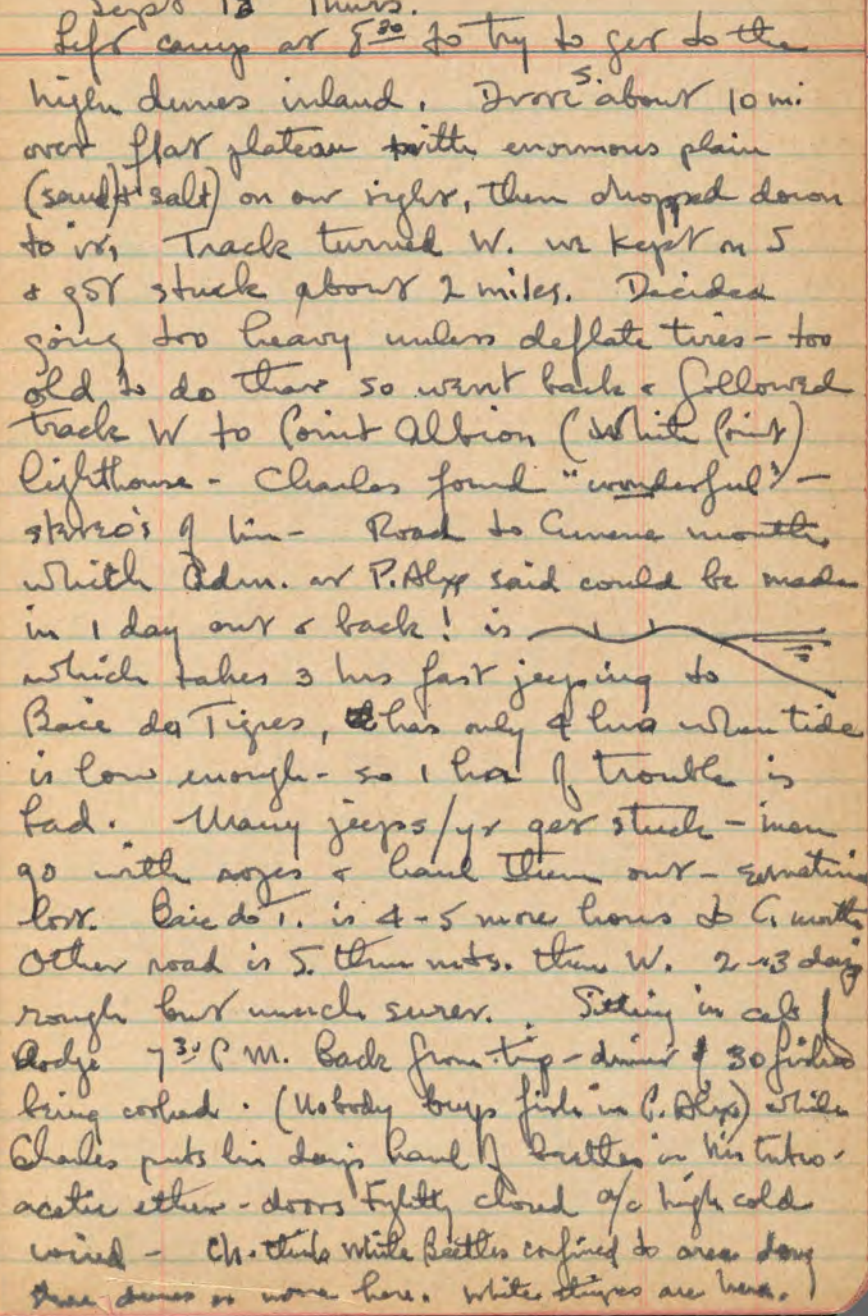 Sept 13 Thurs.
Left camp at 8 30 to try to get to the
high dunes inland. Drove S. about 10 mi
over flat plateau with enormous plain
(sand + salt) on our right, then dropped down
to it, Track turned W. we kept on S
& got stuck about 2 miles. Decided
going too heavy unless deflate tires - too
old to do that so went back & followed
track W to Point Albion (White Point)
lighthouse - Charles found "wonderful" -
stereo's of him - Road to Cunene mouth,
which Adm. at P. Alex said could be made
in 1 day out & back! is
which takes 3 hrs fast jeeping to
Baie do Tigres, & has only 4 hrs when tide
is low enough - so 1 hr of trouble is
bad. Many jeeps/yr get stuck - men
go with ropes & haul them out - sometimes
lost. Baie do T. is 4-5 more hours to C. mouth
Other road is S. thru mts. then W. 2-3 days
rough but much surer. Sitting in cab of
Dodge 7 30 P.M. Back from trip - dinner of 30 fishes
being cooked. (Nobody buys fish in P. Alex) while
Charles puts his day's haul of beetles in his
acetic ether - doors tightly closed a/c high cold
wind - Ch. thinks White Beetles confined to area
dunes as none here. White stripes are here.